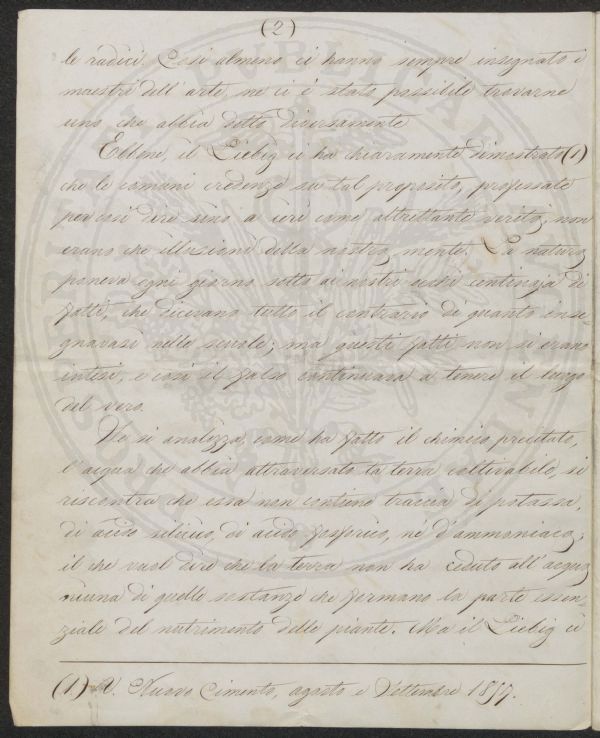 (2)
le radici. Così almeno ci hanno sempre insegnato i
maestri dell'arte, ne ci è stato possibile trovarne
uno che abbia detto diversamente
Ebbene, il Liebig ci ha chiaramente dimostrato (1)
che le comuni credenze su tal proposito, professate
per così dire sino a ieri come altrettante verità, non
erano che illusioni della nostra mente. La natura
poneva ogni giorno sotto ai nostri occhi continaja di
fatti, che dicevano tutto il contrario di quanto inse-
gnavasi nelle scuole; ma questi fatti non si erano
intesi, e così il falso continuava a tenere il luogo
del vero.
Se si analizza, come ha fatto il chimico precitato,
l'acqua che abbia attraversato la terra coltivabile, si
riscontra che essa non contiene traccia di potassa,
di acido silicico, di acido fosforico, nè d'ammoniaca;
il che vuol dire che la terra non ha ceduto all'acqua
niuna di quelle sostanze che formano la parte essen-
ziale del nutrimento delle piante. Ma il Liebig ci
(1) V. Nuovo Cimento, agosto e Settembre 18